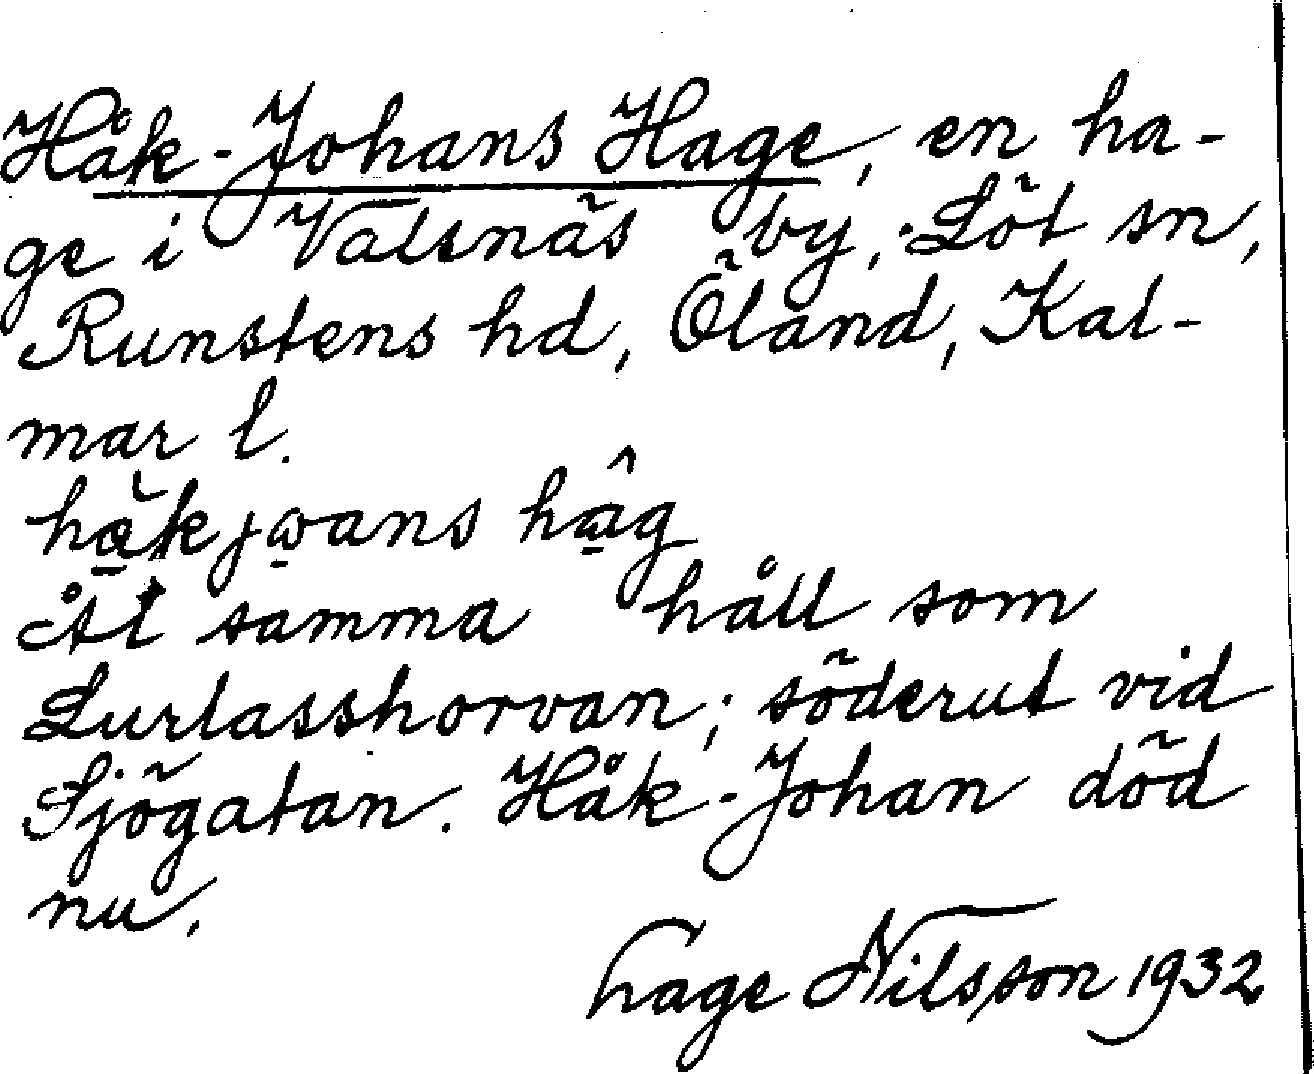 Håk-Johans Hage, en ha-
ge i Valsnäs by, Löt sn,
Runstens hd, Öland, Kal-
mar l.
Åt samma håll som
Lurlasshorvan; söderut vid
Sjögatan. Håk-Johan död
nu.
Hage Nilsson 1932